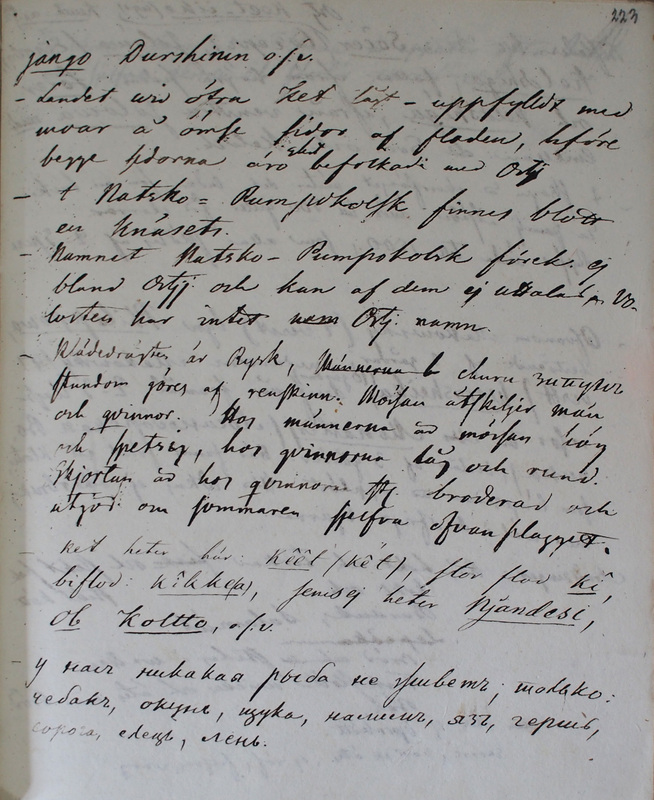 223
jango Durshinin o.s.v.
- Landet vid öfra Ket lågt - uppfylldt med
mvar å ömse sidor af floden, hvföre
begge sidorna äro glest befolkade med Ostj
- I Natsko = Pumpokolsk finnes blott
en Knäsets.
- Namnet Natsko - Pumpokolsk förek. ej
bland Ostj och kan af dem ej uttalas, Vo-
losten har intet nam Ostj. namn.
- Klädedrägten är Rysk, Männerna b churu
stundom göres af renskinn. Mössan åtskiljer män
och qvinnor. Hos männerna är mössan hög
och spetsig, hos qvinnorna låg och rund.
Skjortan är hos qvinnorna broderad och
utgör om sommaren sjelfva ofvanplagget.
- Ket heter här: Kêêt (kêt), stor flod kî,
biflod: kîkkea, Jenisej heter Njandesi,
Ob Koltto, o.s.v.
- У насъ никакая рыба не живетъ; только:
чебакъ, окунь, щука, налимъ, язъ, гершь,
сорога, елецъ, лень.